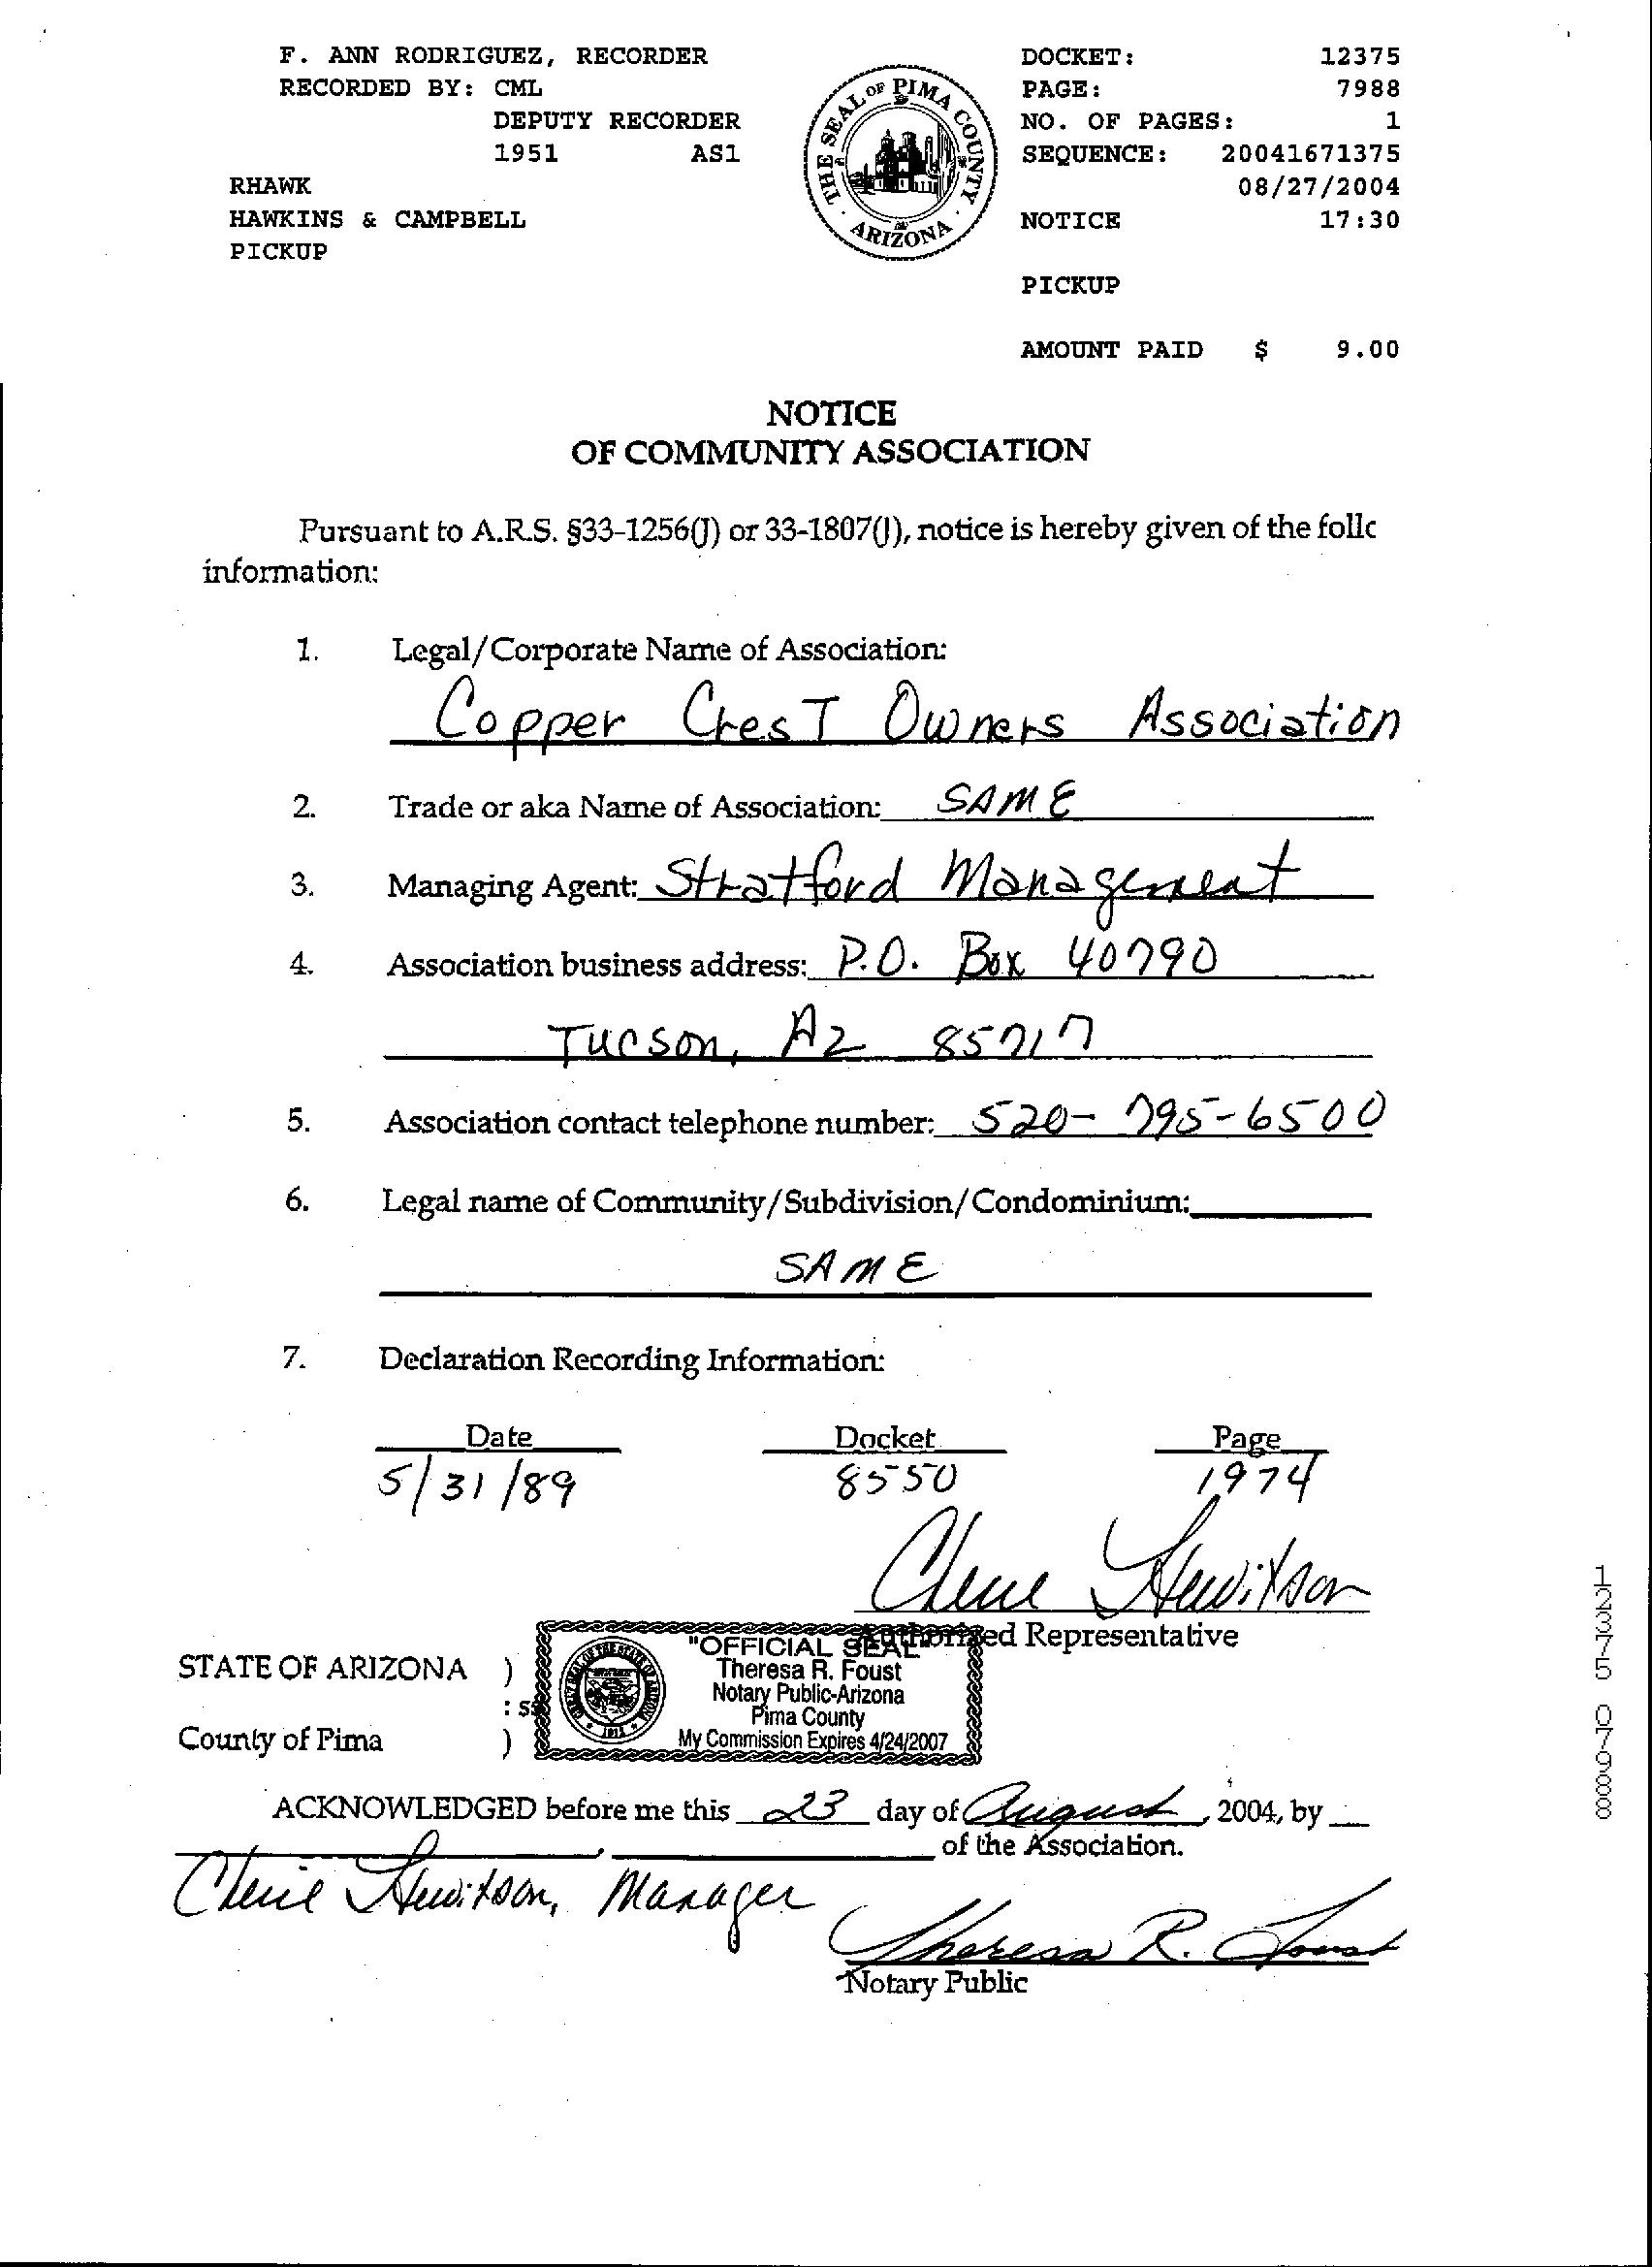 F. ANN RODRIGUEZ, RECORDER
RECORDED BY: CML
DEPUTY RECORDER
1951 AS1
RHAWK
HAWKINS & CAMPBELL
PICKUP
THE SEAL OF PIMA COUNTY
ARIZONA
DOCKET: 12375
PAGE: 7988
NO. OF PAGES: 1
SEQUENCE: 20041671375
08/27/2004
NOTICE 17:30
PICKUP
AMOUNT PAID $ 9.00
NOTICE
OF COMMUNITY ASSOCIATION
Pursuant to A.R.S. §33-1256(J) or 33-1807(J), notice is hereby given of the follc
information:
1. Legal/Corporate Name of Association:
Copper Crest Owners Association
2. Trade or aka Name of Association: SAME
3. Managing Agent: Stratford Management
4. Association business address: P.O. Box 40790
Tucson, AZ 85717
5. Association contact telephone number: 520-795-6500
6. Legal name of Community/Subdivision/Condominium:
SAME
7. Declaration Recording Information:
Date Docket Page
5/31/89 8550 1974
Cherie Hewitson
Authorized Representative
STATE OF ARIZONA )
: ss
County of Pima )
"OFFICIAL SEAL"
Theresa R. Foust
Notary Public-Arizona
Pima County
My Commission Expires 4/24/2007
ACKNOWLEDGED before me this 23 day of August, 2004, by
, of the Association.
Cherie Hewitson, Manager
Theresa R. Foust
Notary Public
12375 07988